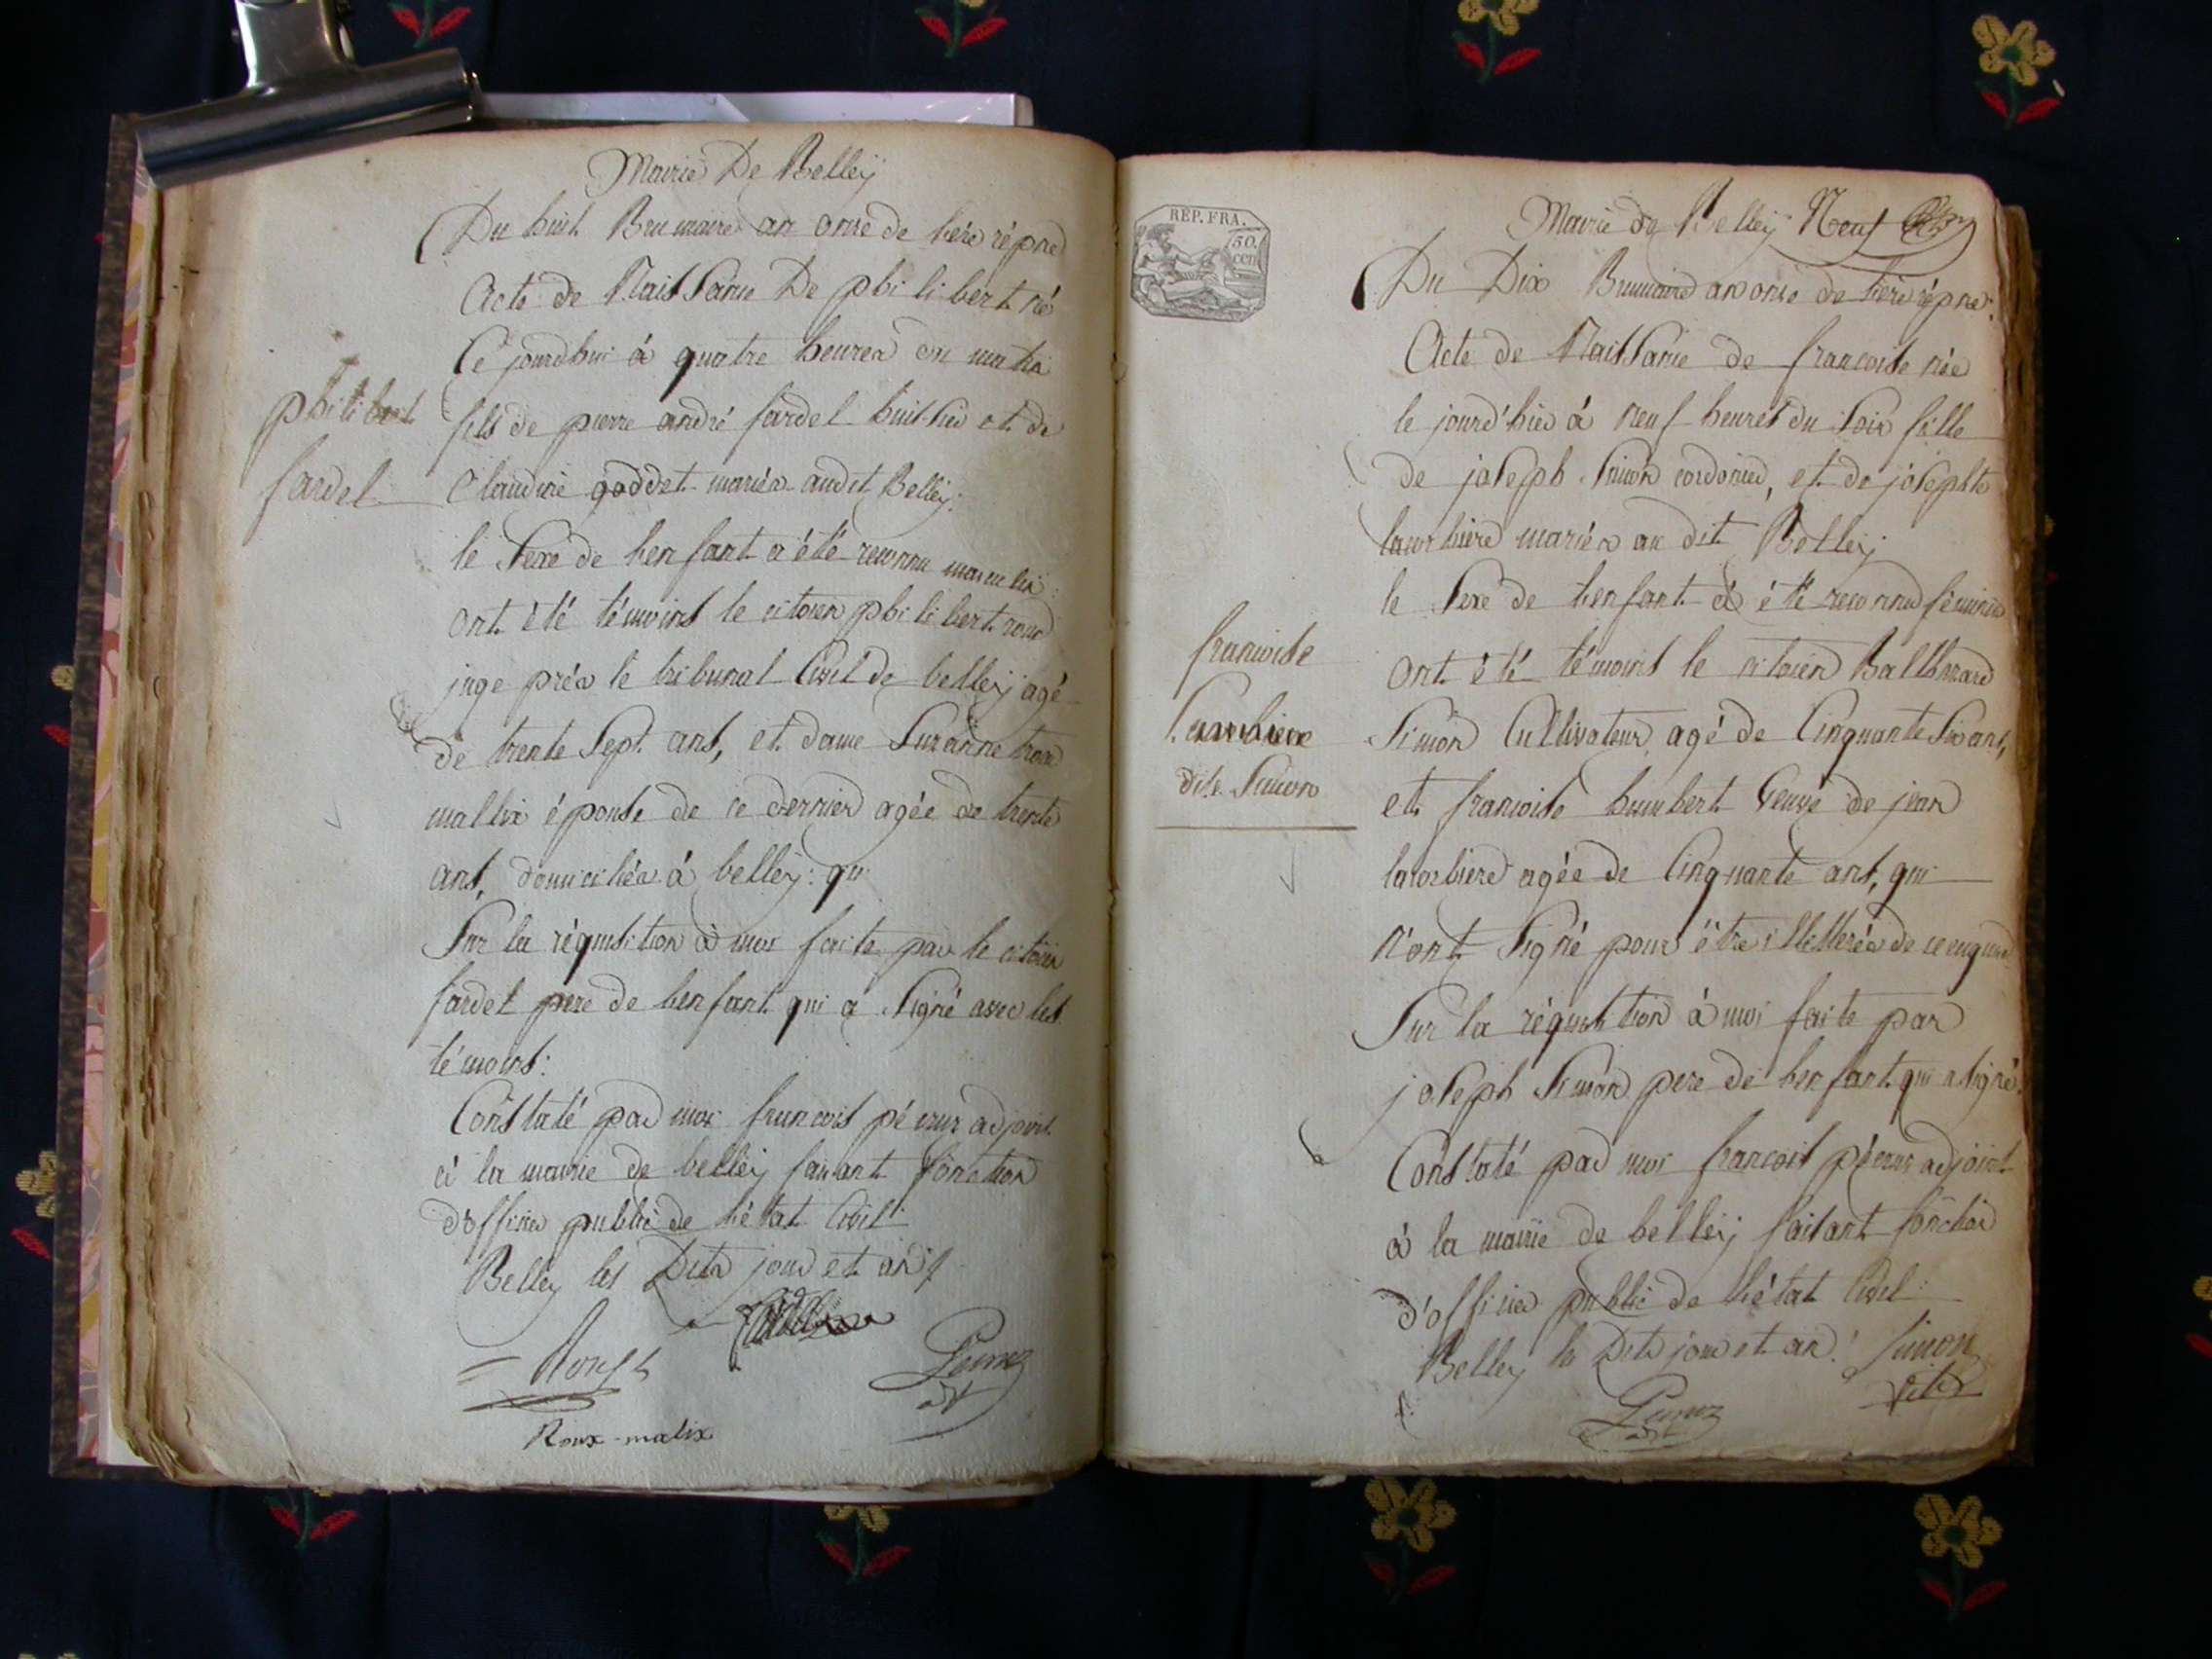 Mairie De Belleÿ
Du huit Brumaire an onse de l'ère répne
Acte de Naissance De philibert né
Ce jourdhui à quatre heures du matin
fils de pierre andré fardel huissier et de
Claudine goddet mariés audit Belleÿ:
le Sexe de l'enfant a été reconnu masculin:
ont été témoins le citoien philibert roux
juge près le tribunal Civil de belleÿ agé
de trente Sept ans, et dame Suzanne roux
mallix épouse de ce dernier agée de trente
ans, domiciliés à belleÿ: qui
Sur la réquisition à moi faite par le citoien
fardel pere de l'enfant qui a Signé avec les
témoins:
Constaté par moi francois adjoint
à la mairie de belleÿ faisant fonction
d'officier public de l'état Civil:
Belleÿ les Dits jour et an
Roux-malix
philibert
fardel
RÉP. FRA.
50.
cen.
Mairie de Belleÿ Neuf
Du Dix Brumaire an onse de l'ère répne:
Acte de Naissance de francoise née
le jourd'hier à neuf heures du Soir fille
de joseph Simon cordonier, et de josephte
mariés au dit Belleÿ
le Sexe de l'enfant à été reconnu féminin
ont été témoins le citoien Balthazard
Simon Cultivateur, agé de Cinquante Six ans,
et francoise humbert Veuve de jean
agée de Cinquante ans, qui
n'ont Signé pour être illitterés de ce enquis
Sur la réquisition à moi faite par
joseph Simon pere de l'enfant qui a signé.
Constaté par moi francois adjoint
à la mairie de belleÿ faisant fonction
d'officier public de l'état Civil:
Belleÿ les Dits jour et an: Simon
francoise
dite Simon